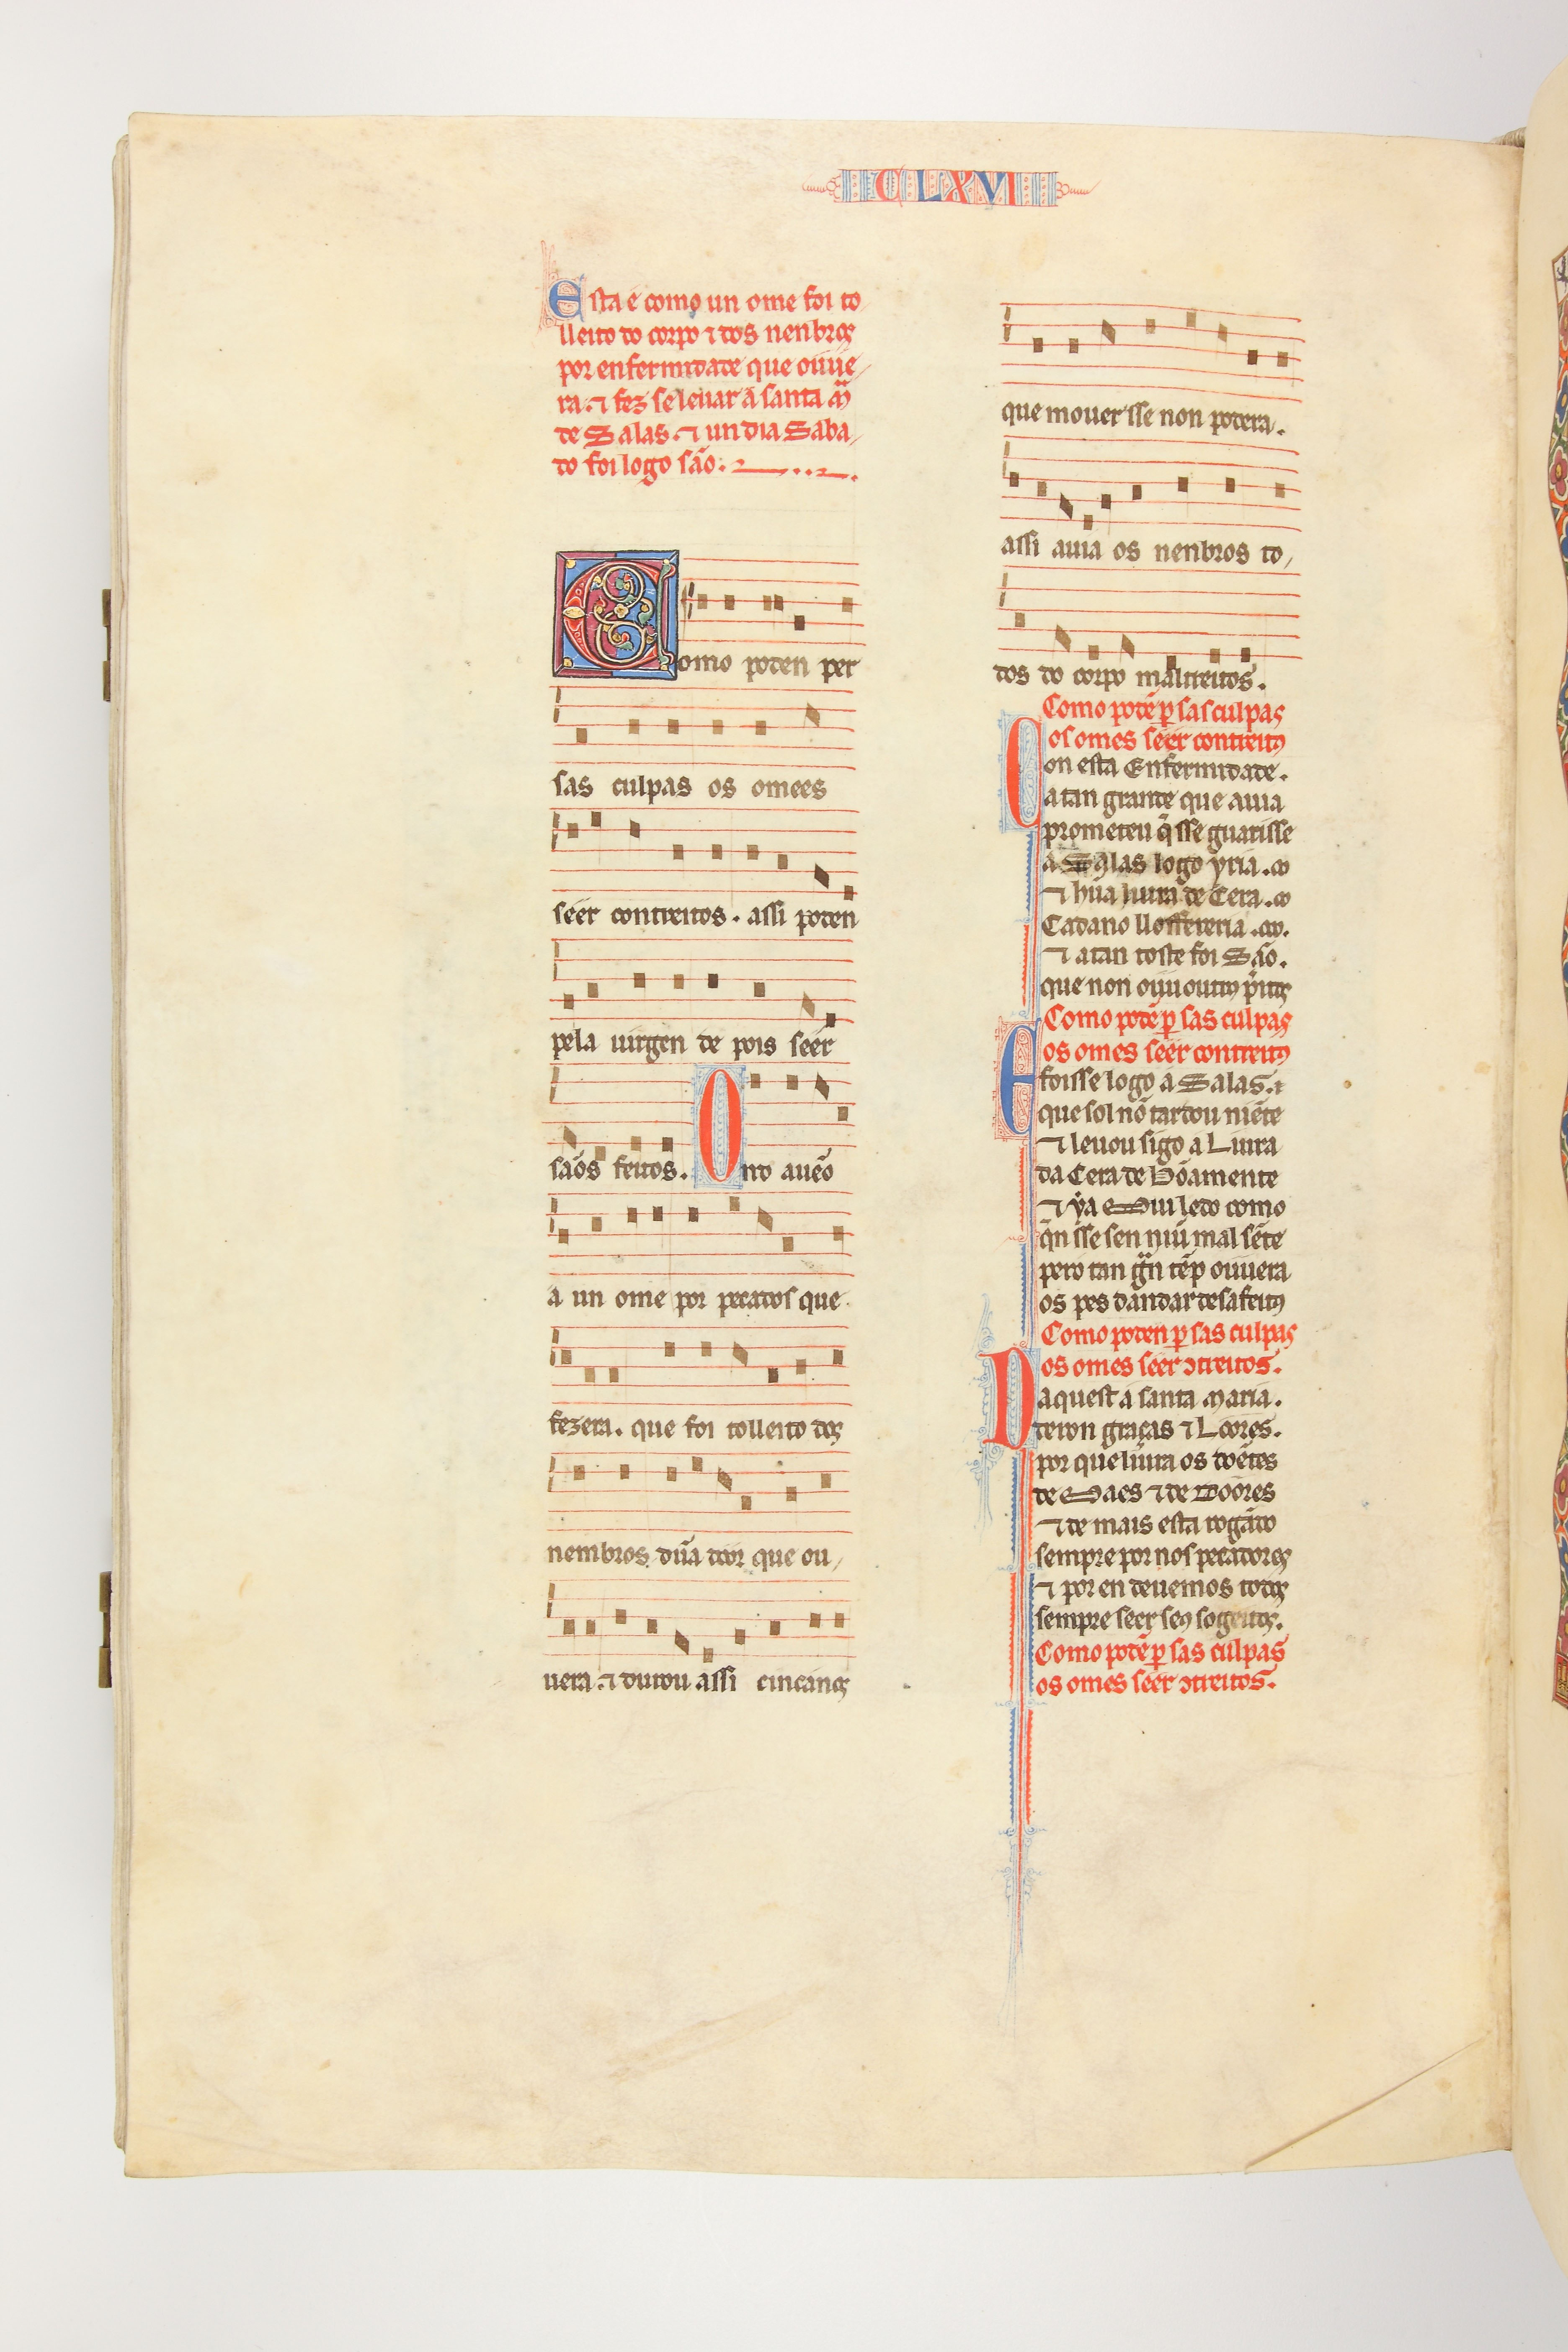 CLXVI
Esta é como un ome foi to
lleito do corpo ⁊ dos nenbros
por enfermidade que ouue
ra. ⁊ fez se leuar a santa Mª
de Salas. ⁊ un dia Saba
do foi logo são.
Como poden per
sas culpas os omees
seer contreitos. assi poden
pela uirgen de pois seer
sãos feitos. Ond aueo
a un ome por pecados que
fezera. que foi tolleito dos
nembros dũa door que ou
uera. ⁊ durou assi cinc anos
que mouer sse non podera.
assi auia os nenbros to
dos do corpo maltreitos.
Como podẽ ꝑ sas culpas
os omes seer contreitos
Con esta Enfermidade.
atan grande que auia
prometeu q̃ sse guarisse
a Salas logo yria.
⁊ hũa liura de Cera.
Cadano ll offereria.
⁊ atan toste foi São.
que non ouu outros p̃itos
Como podẽ ꝑ sas culpas
os omes seer contreitos
E foisse logo a Salas.
que sol nõ tardou niẽte
⁊ leuou sigo a Liura
da Cera de Bõamente
⁊ ya Mui ledo como
q̃n sse sen niũ mal sẽte
pero tan gr̃n tẽp ouuera
os pes dandar desafeitos
Como poden ꝑ sas culpas
os omes seer ɔtreitos.
Daquest a santa Maria.
deron graças ⁊ Loores.
por que liura os doẽtes
de Maes ⁊ de Doores
⁊ de mais esta rogãdo
sempre por nos pecadores
⁊ por en deuemos todos
sempre seer seus sogeitos.
Como podẽ ꝑ sas culpas
os omes seer ɔtreitos.